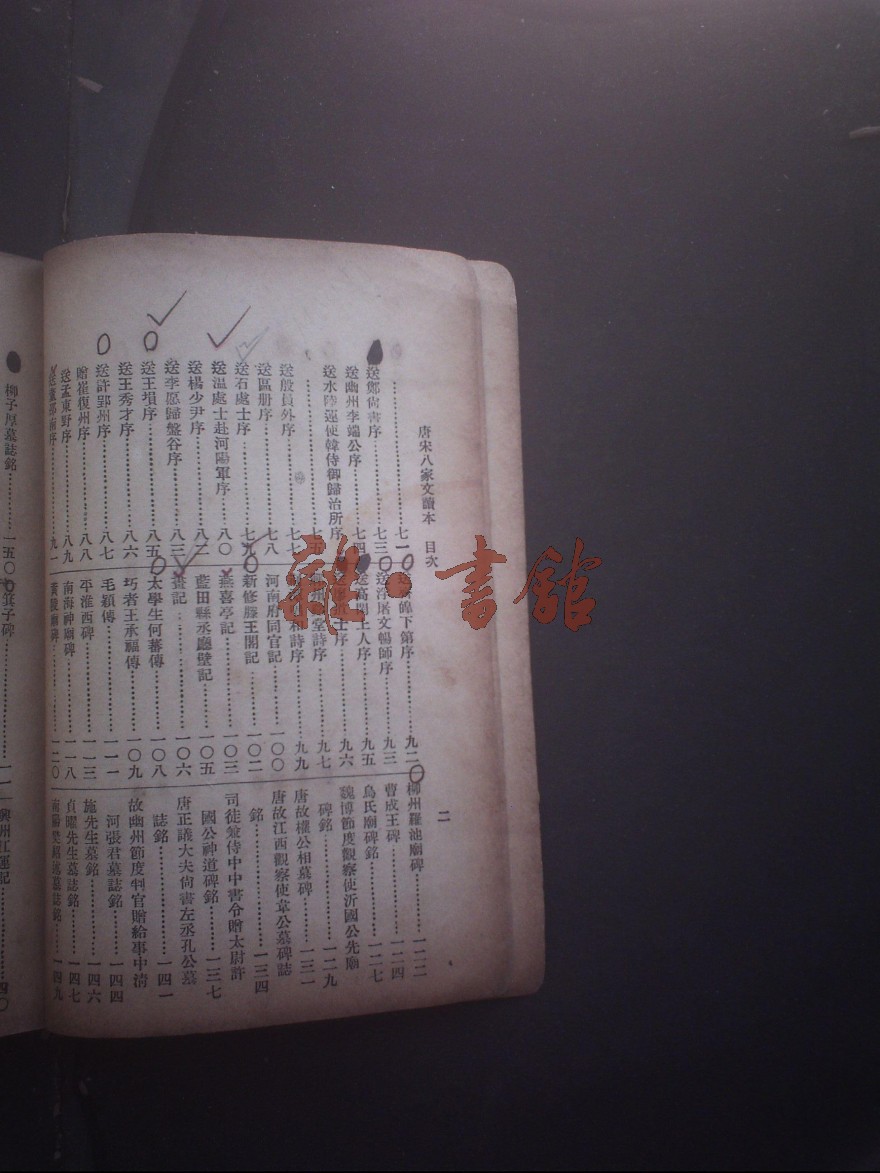 唐宋八家文讀本　目次
二
…………七一
送鄭尙書序…………七三
送幽州李端公序…………七四
送水陸運使韓侍御歸治所序
…………七五
送殷員外序…………七七
送區册序…………七八
送石處士序…………七九
送溫處士赴河陽軍序…………八〇
送楊少尹序…………八二
送李愿歸盤谷序…………八三
送王塤序…………八五
送王秀才序…………八六
送許郢州序…………八七
贈崔復州序…………八八
送孟東野序…………八九
送董邵南序…………九一
下第序…………九二
送浮屠文暢師序…………九三
送高閑上人序…………九五
士序…………九六
堂詩序…………九七
和詩序…………九九
河南府同官記…………一〇〇
新修滕王閣記…………一〇二
燕喜亭記…………一〇三
藍田縣丞廳壁記…………一〇五
畫記…………一〇六
太學生何蕃傳…………一〇八
圬者王承福傳…………一〇九
毛穎傳…………一一一
平淮西碑…………一一三
南海神廟碑…………一一八
黃陵廟碑…………一二〇
柳州羅池廟碑…………一二二
曹成王碑…………一二四
烏氏廟碑銘…………一二七
魏博節度觀察使沂國公先廟
碑銘…………一二九
唐故權公相墓碑…………一三一
唐故江西觀察使韋公墓碑誌
銘…………一三四
司徒兼侍中中書令贈太尉許
國公神道碑銘…………一三七
唐正議大夫尙書左丞孔公墓
誌銘…………一四一
故幽州節度判官贈給事中淸
河張君墓誌銘…………一四四
施先生墓銘…………一四六
貞曜先生墓誌銘…………一四七
南陽樊紹述墓誌銘…………一四九
柳子厚墓誌銘…………一五〇
箕子碑
興州江運記
雜·書館